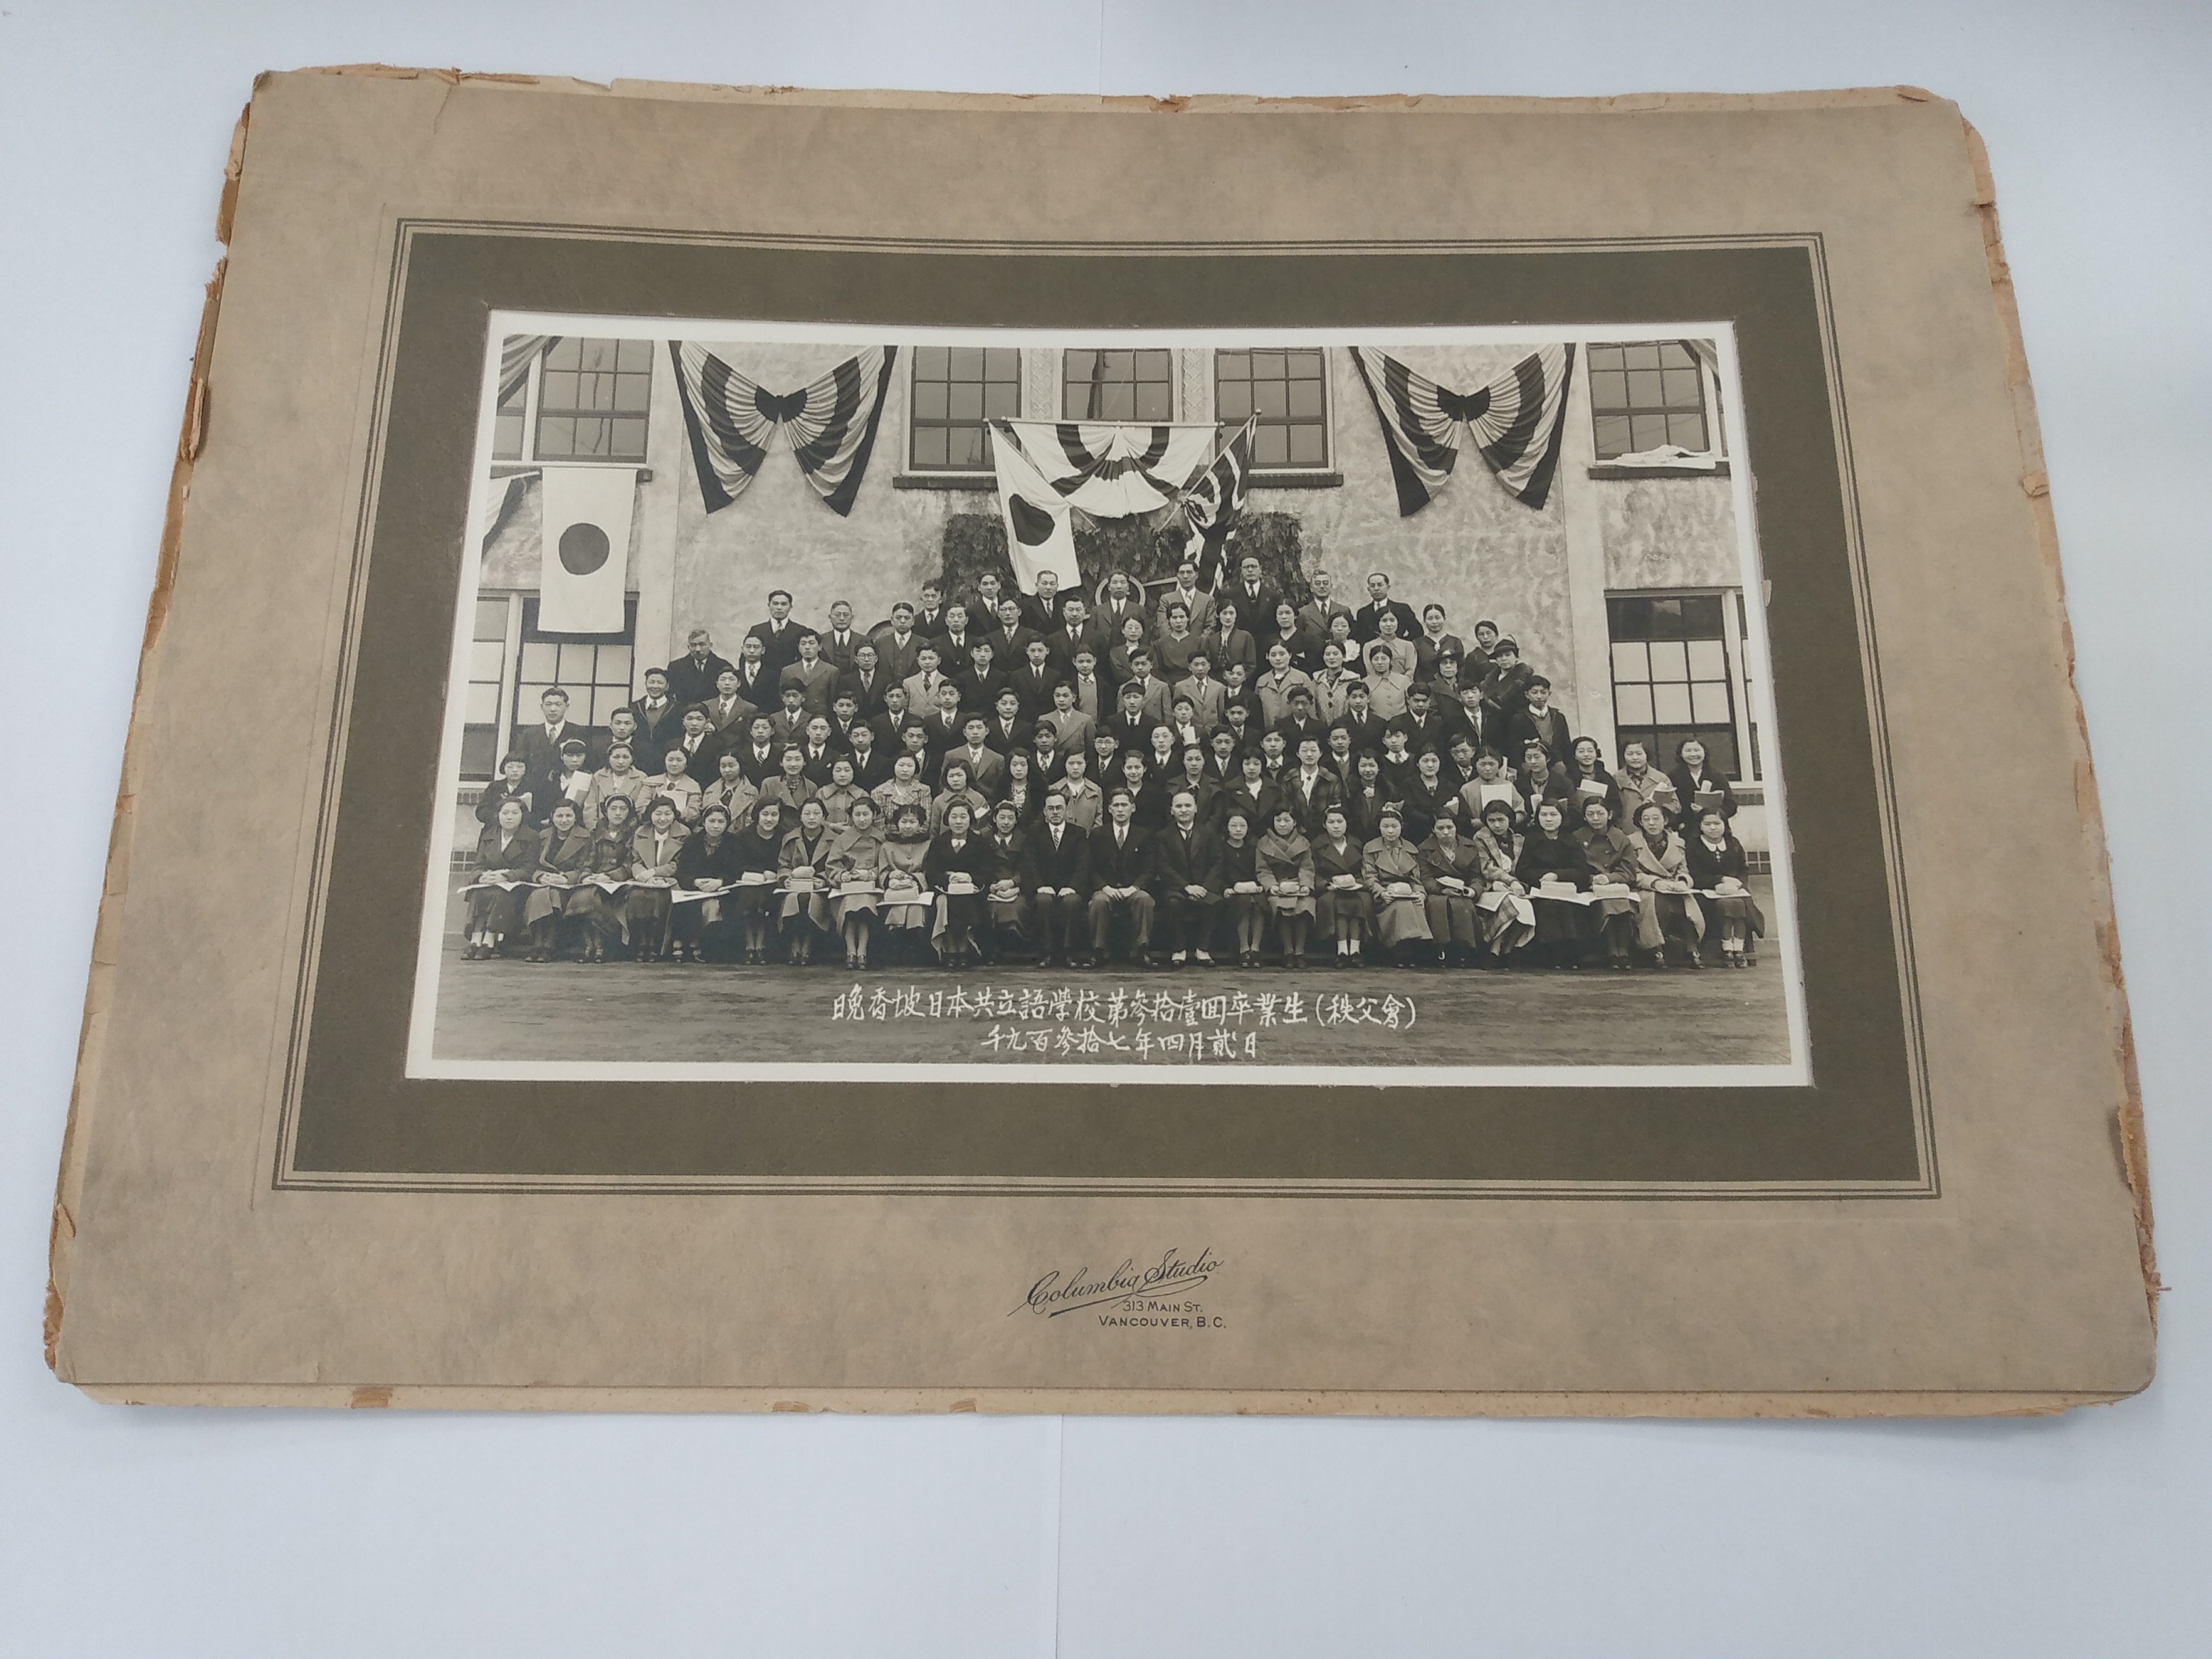 晩香坡日本共立語學校第參拾壹囬卒業生(秩父會)
千九百參拾七年四月貳日
Columbia Studio
313 MAIN ST.
VANCOUVER, B.C.